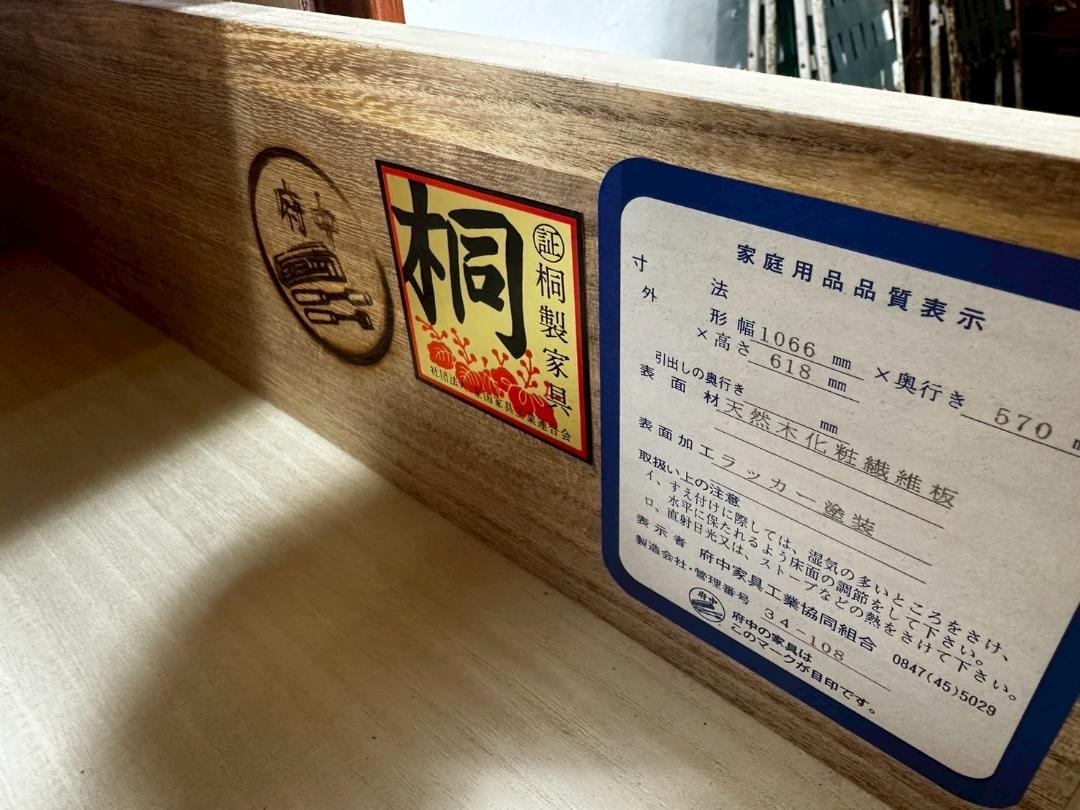 府中
桐
㊣桐製家具
家庭用品品質表示
寸法
外形 幅1066mm ×奥行き570
×高さ618mm
引出しの奥行き mm
表面材 天然木化粧繊維板
表面加工 ラッカー塗装
取扱い上の注意
イ、すえ付けに際しては、湿気の多いところをさけ、
水平に保たれるよう床面の調節をして下さい。
ロ、直射日光又は、ストーブなどの熱をさけて下さい。
表示者 府中家具工業協同組合
0847(45)5029
製造会社・管理番号 34-108
府中
府中の家具は
このマークが目印です。